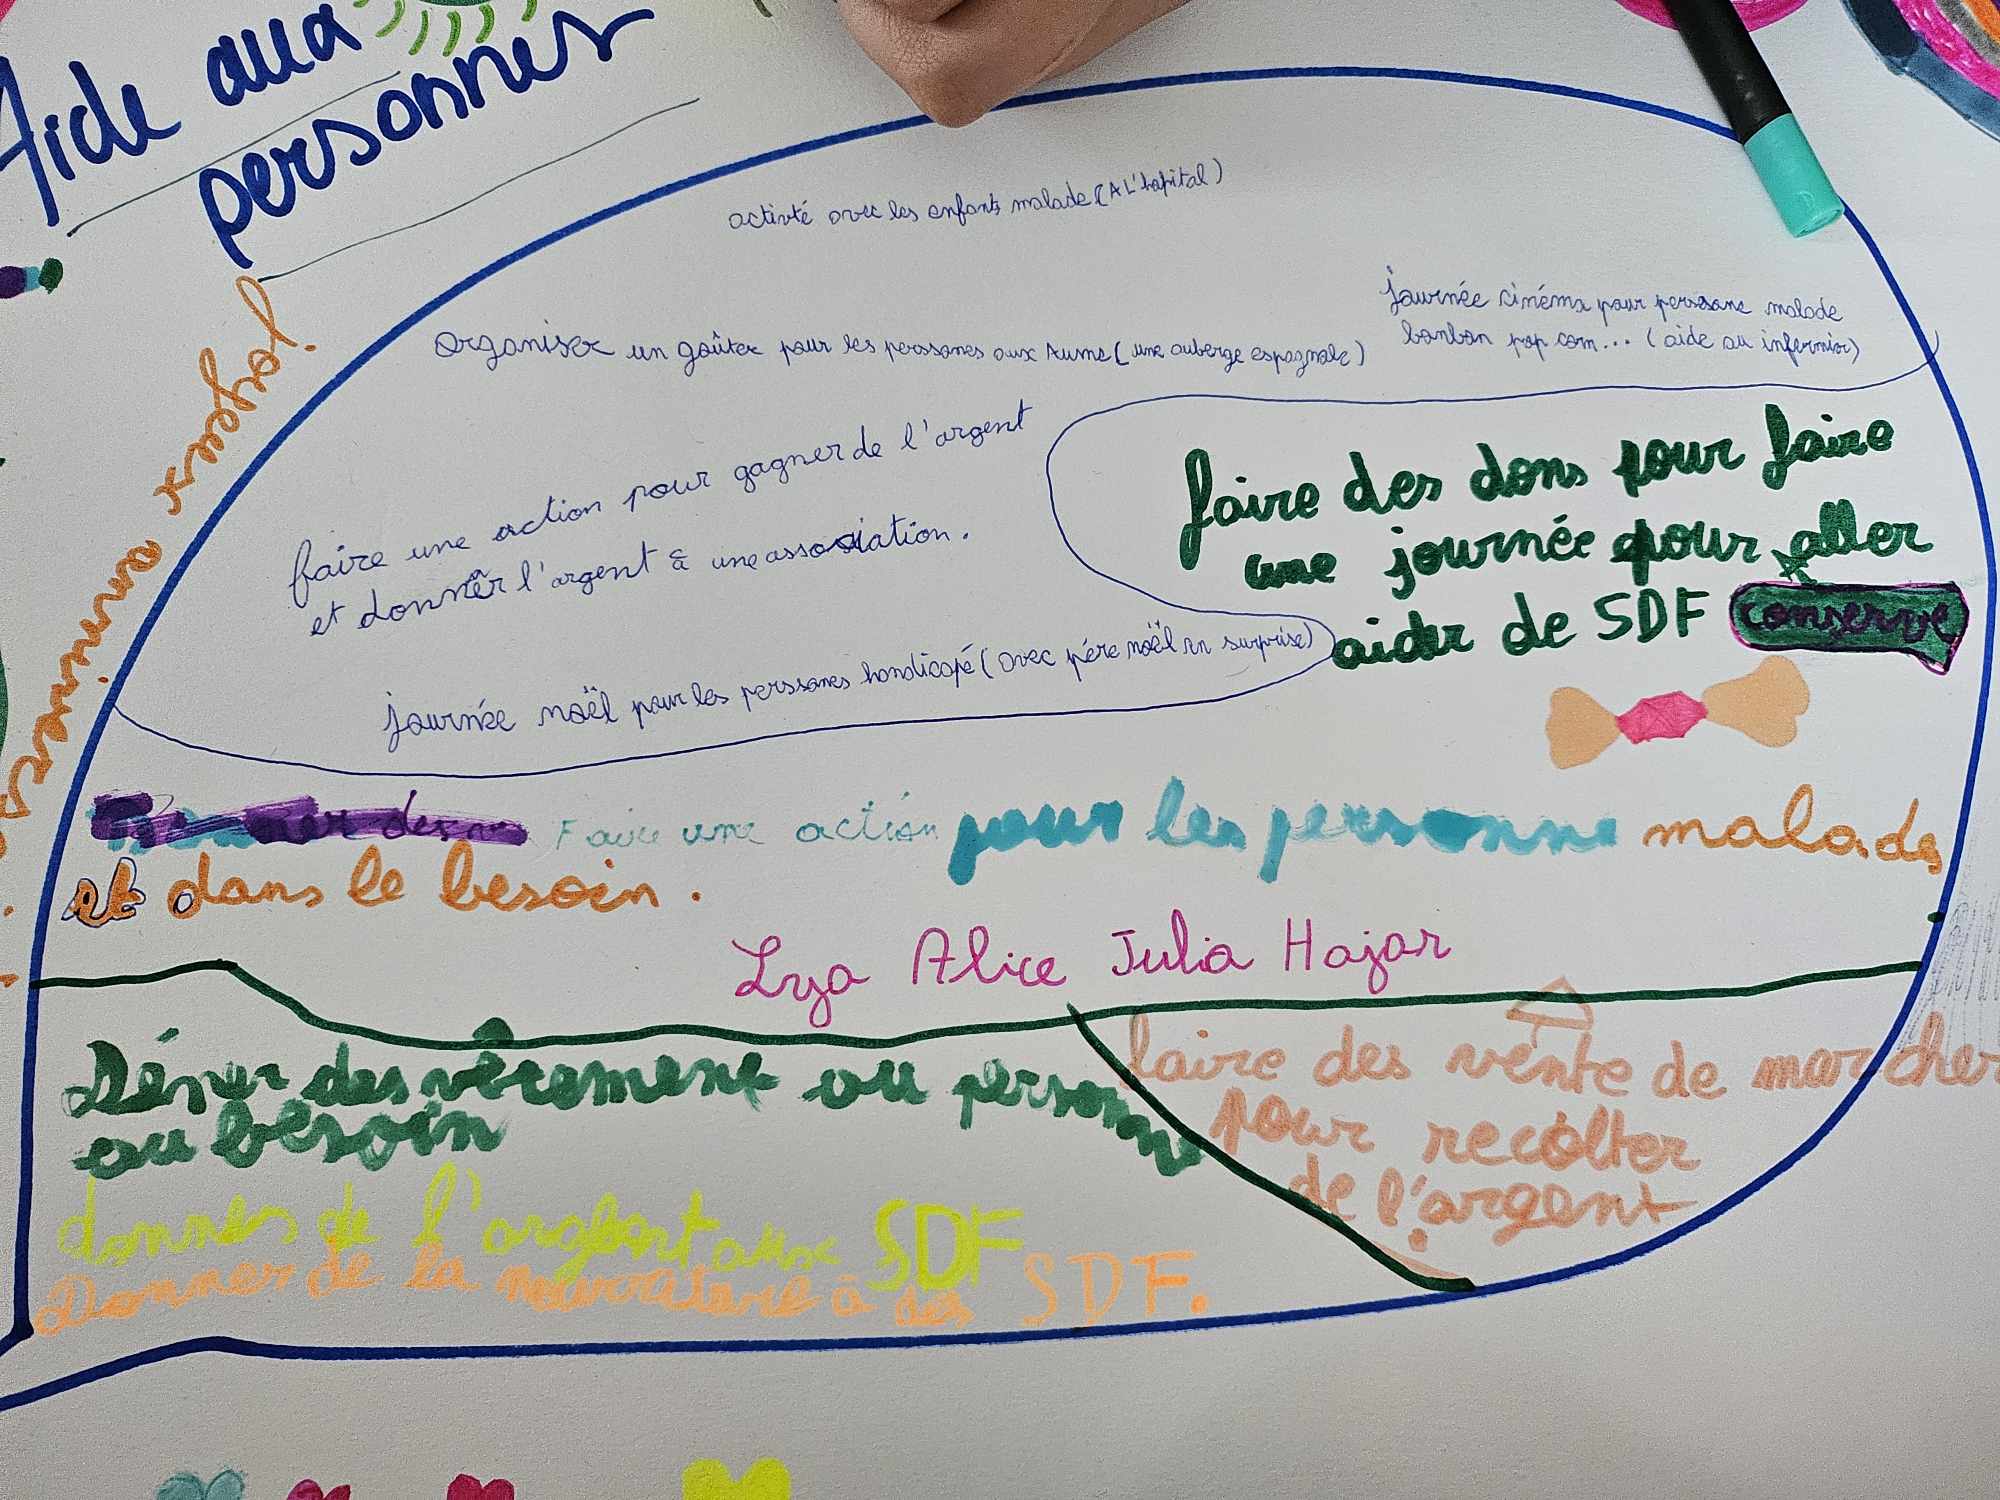 Aide aux
personnes
activté avec les enfants malade (A L'hopital)
journée cinéma pour persone malade
bonbon pop corn... (aide au infermier)
organiser un goûter pour les perssones aux Aums (une auberge espagnole)
faire une action pour gagner de l'argent
et donner l'argent à une association.
journée noël pour les perssones handicapé (avec père noël en surprise)
faire des dons pour faire
une journée pour aller
aider de SDF conserve
Faire une action pour les personne malade
et dans le besoin.
Lya Alice Julia Hajar
Doner des vêtement au personne
au besoin
donner de l'argent aux SDF
Donner de la nourriture à des SDF.
faire des vente de marcher
pour recolter
de l'argent